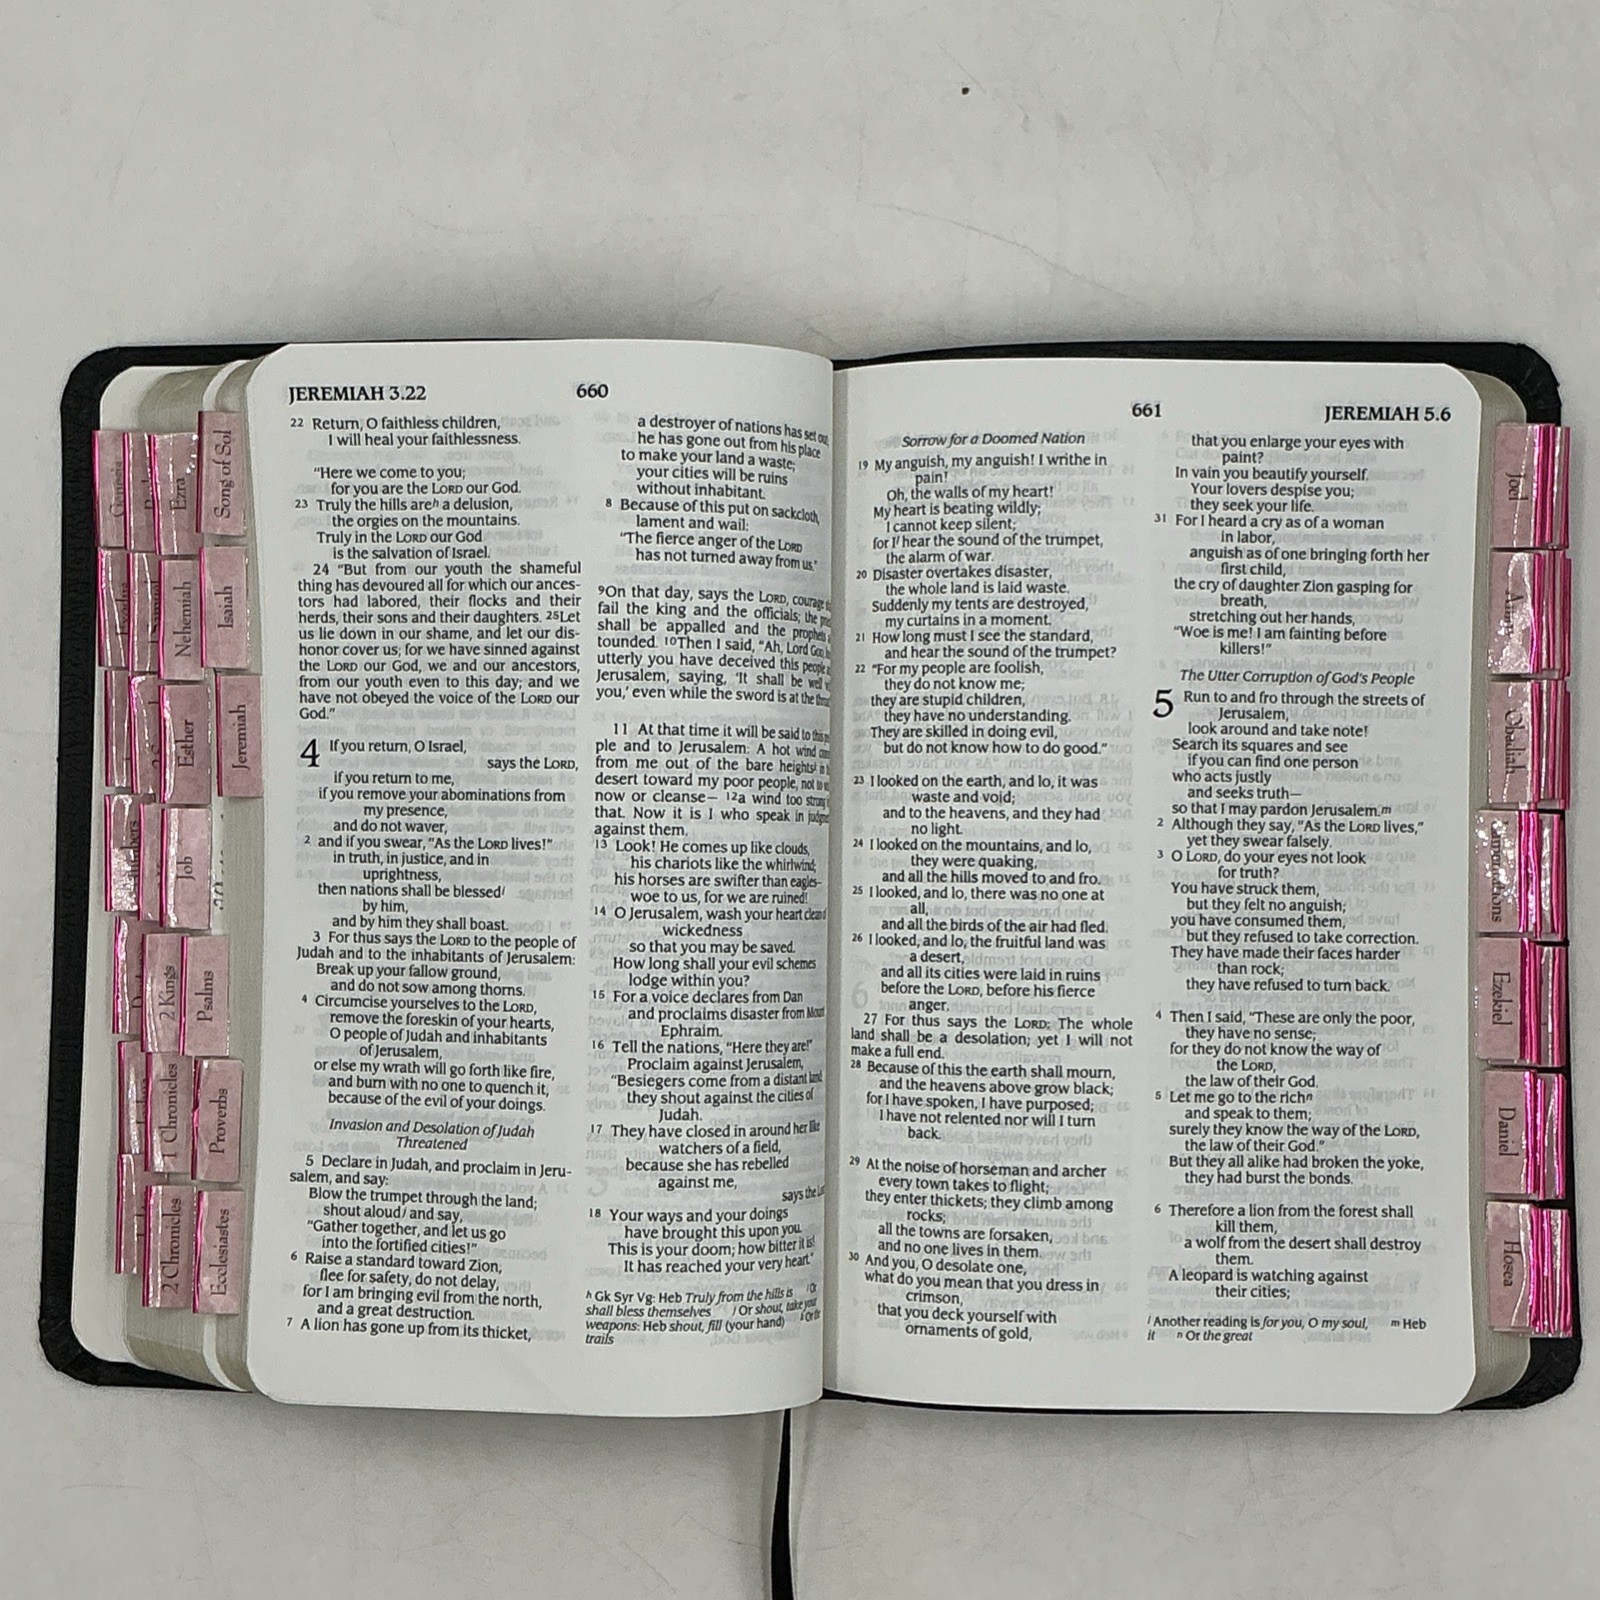 JEREMIAH 3.22
660
22 Return, O faithless children,
I will heal your faithlessness.
"Here we come to you;
for you are the LORD our God.
23 Truly the hills areh a delusion,
the orgies on the mountains.
Truly in the LORD our God
is the salvation of Israel.
24 "But from our youth the shameful
thing has devoured all for which our ances-
tors had labored, their flocks and their
herds, their sons and their daughters. 25Let
us lie down in our shame, and let our dis-
honor cover us; for we have sinned against
the LORD our God, we and our ancestors,
from our youth even to this day; and we
have not obeyed the voice of the LORD our
God."
4 If you return, O Israel,
says the LORD,
if you return to me,
if you remove your abominations from
my presence,
and do not waver,
2 and if you swear, "As the LORD lives!"
in truth, in justice, and in
uprightness,
then nations shall be blessedi
by him,
and by him they shall boast.
3 For thus says the LORD to the people of
Judah and to the inhabitants of Jerusalem:
Break up your fallow ground,
and do not sow among thorns.
4 Circumcise yourselves to the LORD,
remove the foreskin of your hearts,
O people of Judah and inhabitants
of Jerusalem,
or else my wrath will go forth like fire,
and burn with no one to quench it,
because of the evil of your doings.
Invasion and Desolation of Judah
Threatened
5 Declare in Judah, and proclaim in Jeru-
salem, and say:
Blow the trumpet through the land;
shout aloudj and say,
"Gather together, and let us go
into the fortified cities!"
6 Raise a standard toward Zion,
flee for safety, do not delay,
for I am bringing evil from the north,
and a great destruction.
7 A lion has gone up from its thicket,
a destroyer of nations has set out;
he has gone out from his place
to make your land a waste;
your cities will be ruins
without inhabitant.
8 Because of this put on sackcloth,
lament and wail:
"The fierce anger of the LORD
has not turned away from us."
9On that day, says the LORD, courage
fail the king and the officials; the
shall be appalled and the prophets
tounded. 10Then I said, "Ah, Lord GOD,
utterly you have deceived this people
Jerusalem, saying, 'It shall be well
you,' even while the sword is at the
11 At that time it will be said to this
ple and to Jerusalem: A hot wind
from me out of the bare heightsk in
desert toward my poor people, not to
now or cleanse— 12a wind too strong
that. Now it is I who speak in
against them.
13 Look! He comes up like clouds,
his chariots like the whirlwind;
his horses are swifter than eagles—
woe to us, for we are ruined!
14 O Jerusalem, wash your heart clean
wickedness
so that you may be saved.
How long shall your evil schemes
lodge within you?
15 For a voice declares from Dan
and proclaims disaster from Mount
Ephraim.
16 Tell the nations, "Here they are!"
Proclaim against Jerusalem,
"Besiegers come from a distant land
they shout against the cities of
Judah.
17 They have closed in around her like
watchers of a field,
because she has rebelled
against me,
says the
18 Your ways and your doings
have brought this upon you.
This is your doom; how bitter it is!
It has reached your very heart."
h Gk Syr Vg: Heb Truly from the hills is i Or
shall bless themselves j Or shout, take your
weapons: Heb shout, fill (your hand) k Or the
trails
661
JEREMIAH 5.6
Sorrow for a Doomed Nation
19 My anguish, my anguish! I writhe in
pain!
Oh, the walls of my heart!
My heart is beating wildly;
I cannot keep silent;
for Il hear the sound of the trumpet,
the alarm of war.
20 Disaster overtakes disaster,
the whole land is laid waste.
Suddenly my tents are destroyed,
my curtains in a moment.
21 How long must I see the standard,
and hear the sound of the trumpet?
22 "For my people are foolish,
they do not know me;
they are stupid children,
they have no understanding.
They are skilled in doing evil,
but do not know how to do good."
23 I looked on the earth, and lo, it was
waste and void;
and to the heavens, and they had
no light.
24 I looked on the mountains, and lo,
they were quaking,
and all the hills moved to and fro.
25 I looked, and lo, there was no one at
all,
and all the birds of the air had fled.
26 I looked, and lo, the fruitful land was
a desert,
and all its cities were laid in ruins
before the LORD, before his fierce
anger.
27 For thus says the LORD: The whole
land shall be a desolation; yet I will not
make a full end.
28 Because of this the earth shall mourn,
and the heavens above grow black;
for I have spoken, I have purposed;
I have not relented nor will I turn
back.
29 At the noise of horseman and archer
every town takes to flight;
they enter thickets; they climb among
rocks;
all the towns are forsaken,
and no one lives in them.
30 And you, O desolate one,
what do you mean that you dress in
crimson,
that you deck yourself with
ornaments of gold,
that you enlarge your eyes with
paint?
In vain you beautify yourself.
Your lovers despise you;
they seek your life.
31 For I heard a cry as of a woman
in labor,
anguish as of one bringing forth her
first child,
the cry of daughter Zion gasping for
breath,
stretching out her hands,
"Woe is me! I am fainting before
killers!"
The Utter Corruption of God's People
5 Run to and fro through the streets of
Jerusalem,
look around and take note!
Search its squares and see
if you can find one person
who acts justly
and seeks truth—
so that I may pardon Jerusalem.m
2 Although they say, "As the LORD lives,"
yet they swear falsely.
3 O LORD, do your eyes not look
for truth?
You have struck them,
but they felt no anguish;
you have consumed them,
but they refused to take correction.
They have made their faces harder
than rock;
they have refused to turn back.
4 Then I said, "These are only the poor,
they have no sense;
for they do not know the way of
the LORD,
the law of their God.
5 Let me go to the richn
and speak to them;
surely they know the way of the LORD,
the law of their God."
But they all alike had broken the yoke,
they had burst the bonds.
6 Therefore a lion from the forest shall
kill them,
a wolf from the desert shall destroy
them.
A leopard is watching against
their cities;
l Another reading is for you, O my soul, m Heb
it n Or the great
Genesis
Ezra
Song of Sol
Nehemiah
Isaiah
Esther
Jeremiah
Job
2 Kings
Psalms
1 Chronicles
Proverbs
2 Chronicles
Ecclesiastes
Joel
Amos
Obadiah
Lamentations
Ezekiel
Daniel
Hosea